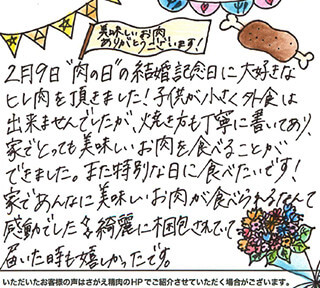 美味しいお肉
ありがとうございます!
2月9日"肉の日"の結婚記念日に大好きな
ヒレ肉を頂きました!子供が小さく外食は
出来ませんでしたが、焼き方も丁寧に書いてあり、
家でとっても美味しいお肉を食べることが
できました。また特別な日に食べたいです!
家であんなに美味しいお肉が食べられるなんて
感動でした。綺麗に梱包されていて
届いた時も嬉しかったです。
いただいたお客様の声はさがえ精肉のHPでご紹介させていただく場合がございます。